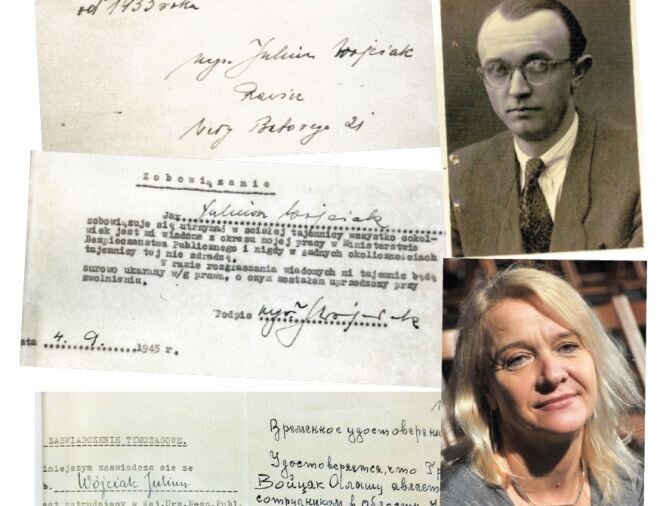 od 1933 roku
Juliusz Wójciak
Zobowiązanie
Ja, Juliusz Wójciak
zobowiązuję się utrzymać w ścisłej tajemnicy wszystko cokol-
wiek jest mi wiadome z okresu mojej pracy w Ministerstwie
Bezpieczeństwa Publicznego i nigdy w żadnych okolicznościach
tajemnicy tej nie zdradzę.
W razie rozgłaszania wiadomych mi tajemnic będę
surowo ukarany w/g prawa, o czym zostałem uprzedzony przy
zwolnieniu.
Podpis
ata 4. 9. 1945 r.
ZAŚWIADCZENIE TYMCZASOWE.
iniejszym zaświadcza się że
b. Wójciak Juliusz
est zatrudniony w Woj.Urz.Bezp.Publ.
Временное удостоверен
Удостоверяется, что Гр
Войцяк
сотрудником в области